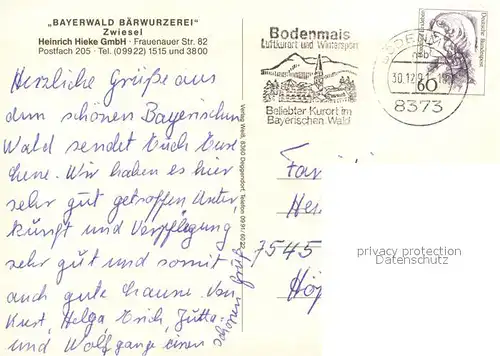 „BAYERWALD BÄRWURZEREI"
Zwiesel
Heinrich Hieke GmbH · Frauenauer Str. 82
Postfach 205 · Tel. (09922) 1515 und 3800
Herzliche Grüße aus
dem schönen Bayerischen
Wald sendet Euch
Wir haben es hier
sehr gut getroffen Unter,
kunft und Verpflegung
sehr gut und somit
auch gute Launе. Von
Kurt, Helga, Erich, Jutta
und Wolfgang einen
schönen Gruß
Verlag Weiß, 8360 Deggendorf, Telefon
Bodenmais
Luftkurort und Wintersport
Beliebter Kurort im
Bayerischen Wald
30.12.
8373
60
Deutsche Bundespost
Fam
He
7545
Hö
privacy protection
Datenschutz